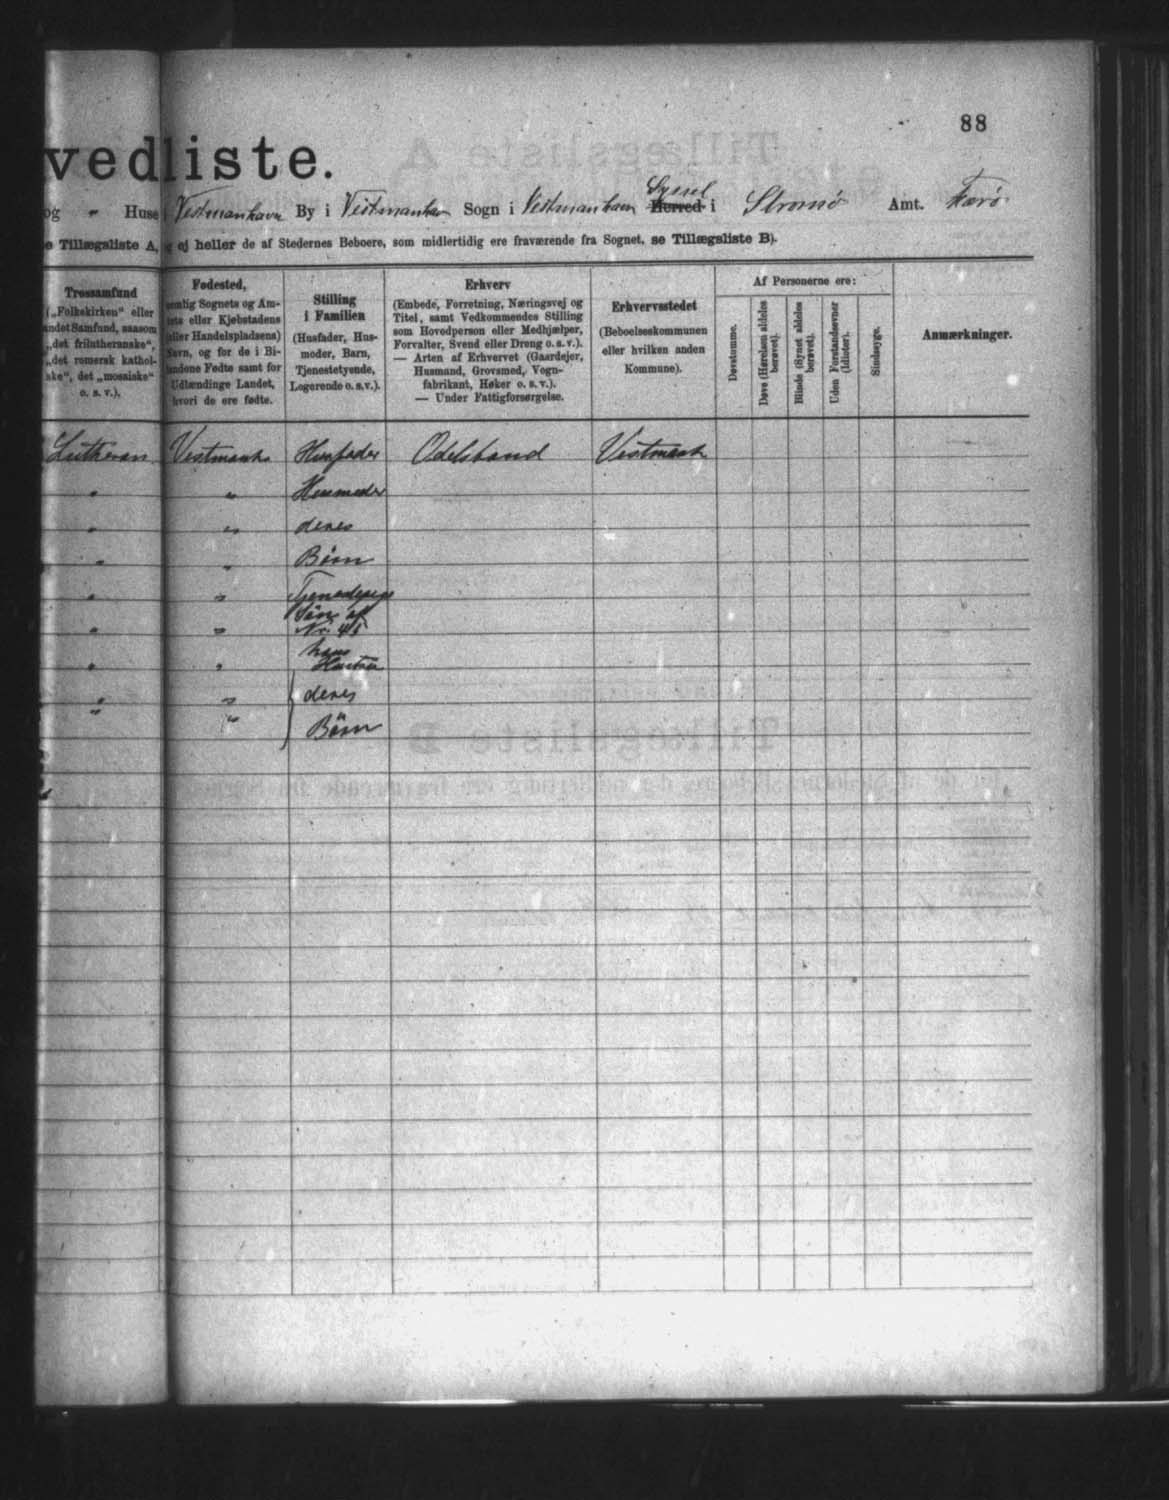 88
vedliste.
og " Huse i Vestmanhavn By i Vestmanhavn Sogn i Vestmanhavn Herred Syssel i Strømø Amt. Færø
e Tillægsliste A, og ej heller de af Stedernes Beboere, som midlertidig ere fraværende fra Sognet, se Tillægsliste B).
Trossamfund
(„Folkekirken" eller
andet Samfund, saasom
„det frilutheranske",
„det romersk kathol-
ske", det „mosaiske"
o. s. v.).
Fødested,
nemlig Sognets og Am-
tets eller Kjøbstadens
(eller Handelspladsens)
Navn, og for de i Bi-
landene Fødte samt for
Udlændinge Landet,
hvori de ere fødte.
Stilling
i Familien
(Husfader, Hus-
moder, Barn,
Tjenestetyende,
Logerende o. s. v.).
Erhverv
(Embede, Forretning, Næringsvej og
Titel, samt Vedkommendes Stilling
som Hovedperson eller Medhjælper,
Forvalter, Svend eller Dreng o. s. v.).
— Arten af Erhvervet (Gaardejer,
Husmand, Grovsmed, Vogn-
fabrikant, Høker o. s. v.).
— Under Fattigforsørgelse.
Erhvervsstedet
(Beboelseskommunen
eller hvilken anden
Kommune).
Af Personerne ere:
Døvstumme.
Døve (Hørelsen aldeles
berøvet).
Blinde (Synet aldeles
berøvet).
Uden Forstandsevner
(Idioter).
Sindssyge.
Anmærkninger.
Lutheran Vestmanh Husfader Odelsbond Vestmanh
" " Husmoder
" " deres
" " Børn
" " Tjenestepige
Søn af
" " Nr.
hans
" " Hustru
" " deres
" " Børn